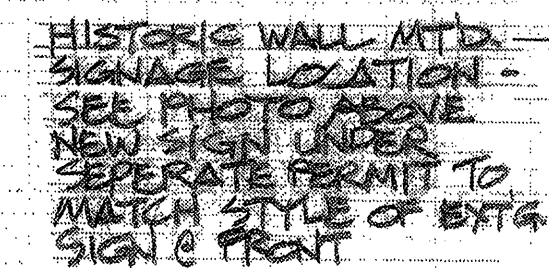 HISTORIC WALL MT'D. —
SIGNAGE LOCATION -
SEE PHOTO ABOVE
NEW SIGN UNDER
SEPERATE PERMIT TO
MATCH STYLE OF EXT'G.
SIGN @ FRONT